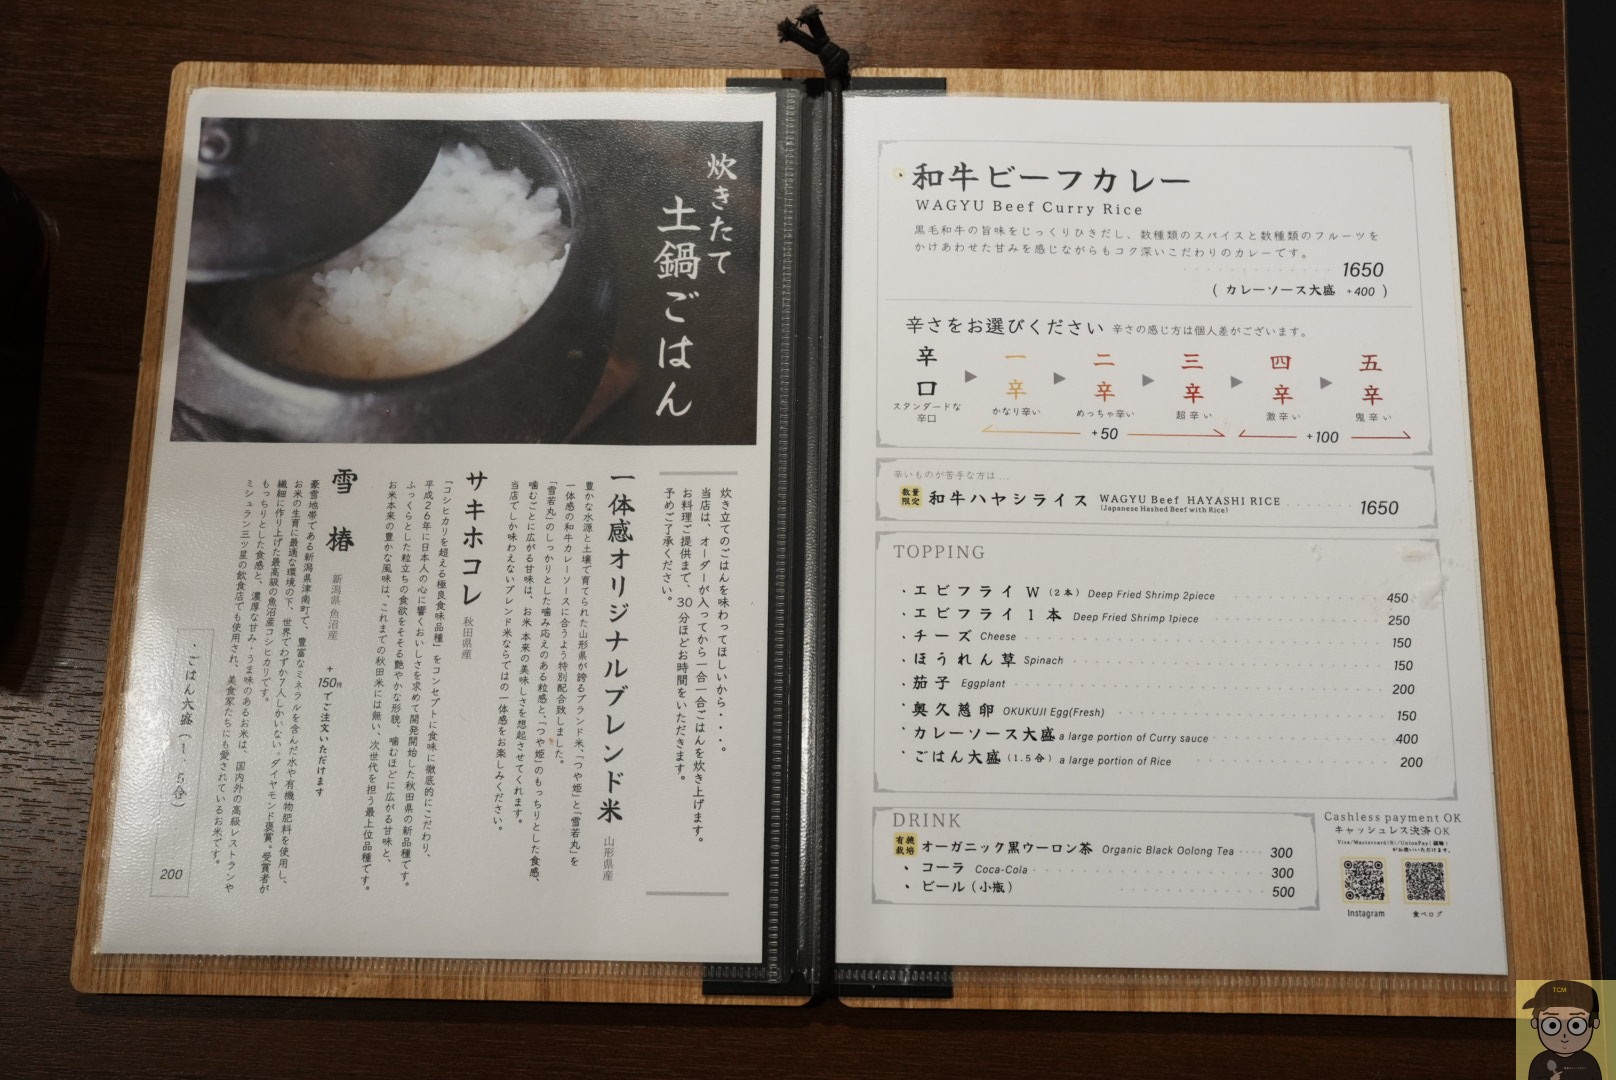 炊きたて
土鍋ごはん
炊き立てのごはんを味わってほしいから・・・。
当店は、オーダーが入ってから一合一合ごはんを炊き上げます。
お料理ご提供まで、30分ほどお時間をいただきます。
予めご了承ください。
一体感オリジナルブレンド米 山形県産
豊かな水源と土壌で育てられた山形県が誇るブランド米、「つや姫」と「雪若丸」を
一体感の和牛カレーソースに合うよう特別配合致しました。
「雪若丸」のしっかりとした噛み応えのある粒感と、「つや姫」のもっちりとした食感、
噛むごとに広がる甘味は、お米 本来の美味しさを想起させてくれます。
当店でしか味わえないブレンド米ならではの一体感をお楽しみください。
サキホコレ 秋田県産
「コシヒカリを超える極良食味品種」をコンセプトに食味に徹底的にこだわり、
平成26年に日本人の心に響くおいしさを求めて開発開始した秋田県の新品種です。
ふっくらとした粒立ちの食欲をそそる艶やかな形貌、噛むほどに広がる甘味と、
お米本来の豊かな風味は、これまでの秋田米には無い、次世代を担う最上位品種です。
雪椿 新潟県 魚沼産 +150円でご注文いただけます
豪雪地帯である新潟県津南町で、豊富なミネラルを含んだ水や有機物肥料を使用し、
お米の生育に最適な環境の下、世界でわずか7人しかいない「ダイヤモンド褒賞」受賞者が
繊細に作り上げた最高級の魚沼産コシヒカリです。
もっちりとした食感と、濃厚な甘み・うま味のあるお米は、国内外の高級レストランや
ミシュラン三ツ星の飲食店でも使用され、美食家たちにも愛されているお米です。
・ごはん大盛(1.5合) 200
和牛ビーフカレー
WAGYU Beef Curry Rice
黒毛和牛の旨味をじっくりひきだし、数種類のスパイスと数種類のフルーツを
かけあわせた甘みを感じながらもコク深いこだわりのカレーです。
1650
( カレーソース大盛 +400 )
辛さをお選びください 辛さの感じ方は個人差がございます。
辛口 ▶ 一辛 ▶ 二辛 ▶ 三辛 ▶ 四辛 ▶ 五辛
スタンダードな辛口 かなり辛い めっちゃ辛い 超辛い 激辛い 鬼辛い
+50 +100
辛いものが苦手な方は...
数量限定 和牛ハヤシライス WAGYU Beef HAYASHI RICE 1650
(Japanese Hashed Beef with Rice)
TOPPING
・エビフライ W (2本) Deep Fried Shrimp 2piece 450
・エビフライ 1本 Deep Fried Shrimp 1piece 250
・チーズ Cheese 150
・ほうれん草 Spinach 150
・茄子 Eggplant 200
・奥久慈卵 OKUKUJI Egg(Fresh) 150
・カレーソース大盛 a large portion of Curry sauce 400
・ごはん大盛 (1.5合) a large portion of Rice 200
DRINK
有機栽培 オーガニック黒ウーロン茶 Organic Black Oolong Tea 300
・コーラ Coca-Cola 300
・ビール(小瓶) 500
Cashless payment OK
キャッシュレス決済 OK
Instagram
食べログ
TCM